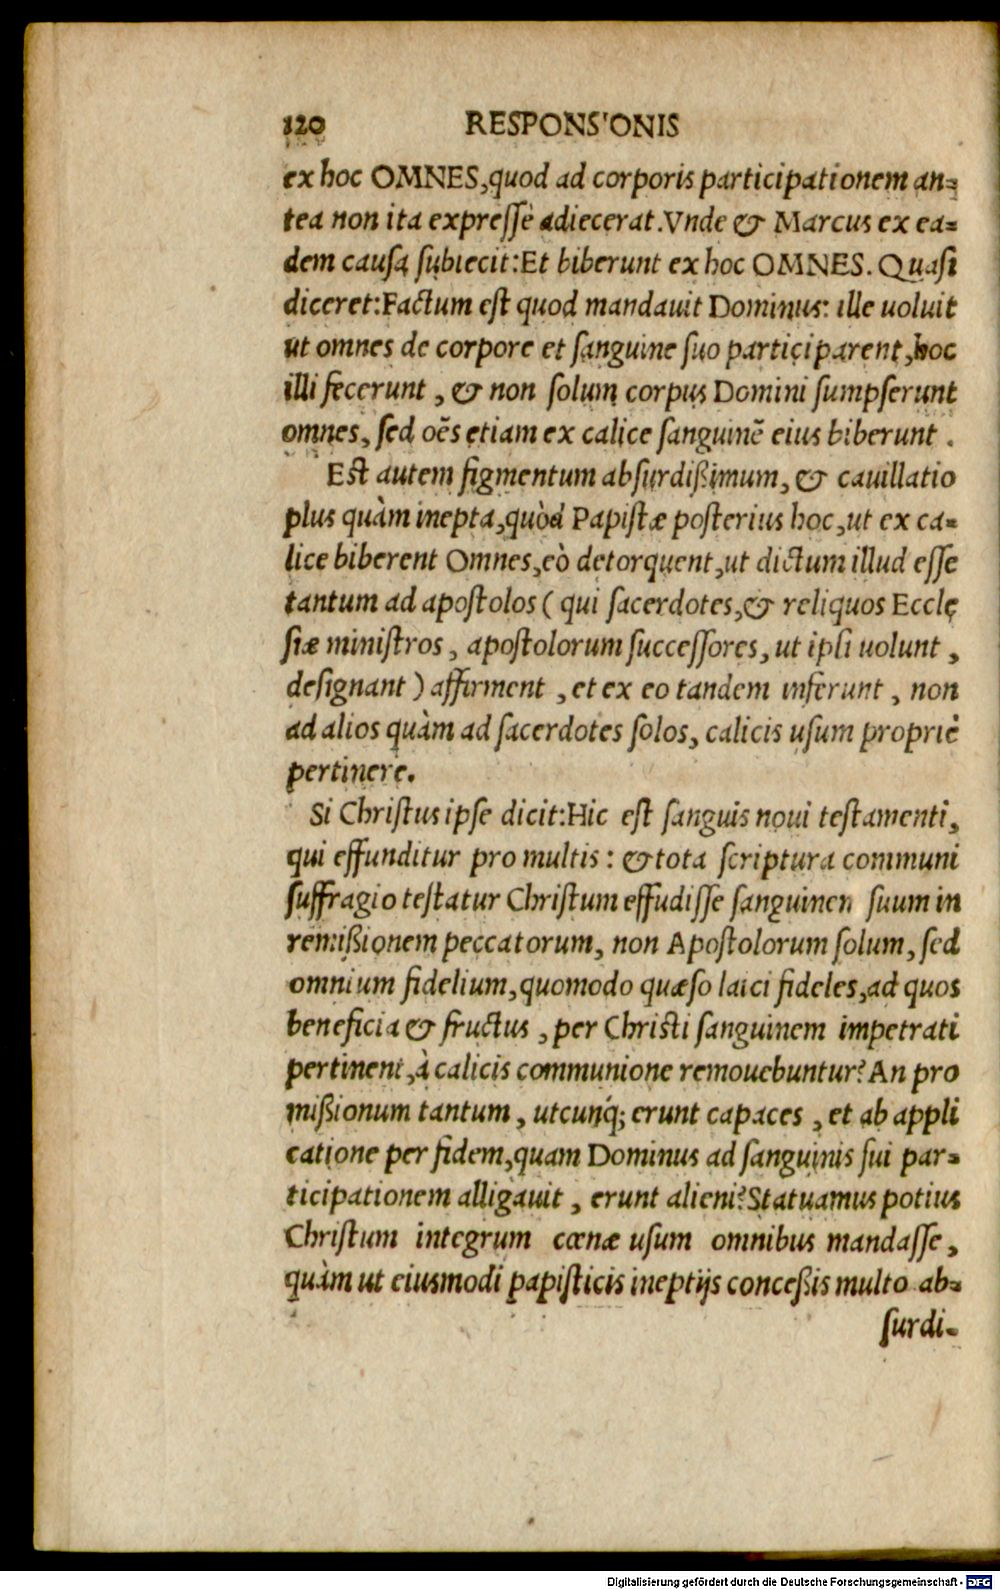 120 RESPONS'ONIS
ex hoc OMNES, quod ad corporis participationem an=
tea non ita expreſſè adiecerat. Vnde & Marcus ex ea=
dem cauſa ſubiecit: Et biberunt ex hoc OMNES. Quaſi
diceret: Factum eſt quod mandauit Dominus: ille uoluit
ut omnes de corpore et ſanguine ſuo participarent, hoc
illi fecerunt, & non ſolum corpus Domini ſumpſerunt
omnes, ſed oēs etiam ex calice ſanguinē eius biberunt.
Eſt autem figmentum abſurdißimum, & cauillatio
plus quàm inepta, quòd Papiſtæ poſterius hoc, ut ex ca=
lice biberent Omnes, eò detorquent, ut dictum illud eſſe
tantum ad apoſtolos (qui ſacerdotes, & reliquos Eccle
ſiæ miniſtros, apoſtolorum ſucceſſores, ut ipſi uolunt,
deſignant) affirment, et ex eo tandem inferunt, non
ad alios quàm ad ſacerdotes ſolos, calicis uſum propriè
pertinere.
Si Chriſtus ipſe dicit: Hic eſt ſanguis noui teſtamenti,
qui effunditur pro multis: & tota ſcriptura communi
ſuffragio teſtatur Chriſtum effudiſſe ſanguinen ſuum in
remißionem peccatorum, non Apoſtolorum ſolum, ſed
omnium fidelium, quomodo quæſo laici fideles, ad quos
beneficia & fructus, per Chriſti ſanguinem impetrati
pertinent, à calicis communione remouebuntur? An pro
mißionum tantum, utcunq́; erunt capaces, et ab appli
catione per fidem, quam Dominus ad ſanguinis ſui par=
ticipationem alligauit, erunt alieni? Statuamus potius
Chriſtum integrum cœnæ uſum omnibus mandaſſe,
quàm ut eiuſmodi papiſticis ineptijs conceßis multo ab=
ſurdi-
Digitalisierung gefördert durch die Deutsche Forschungsgemeinschaft - DFG